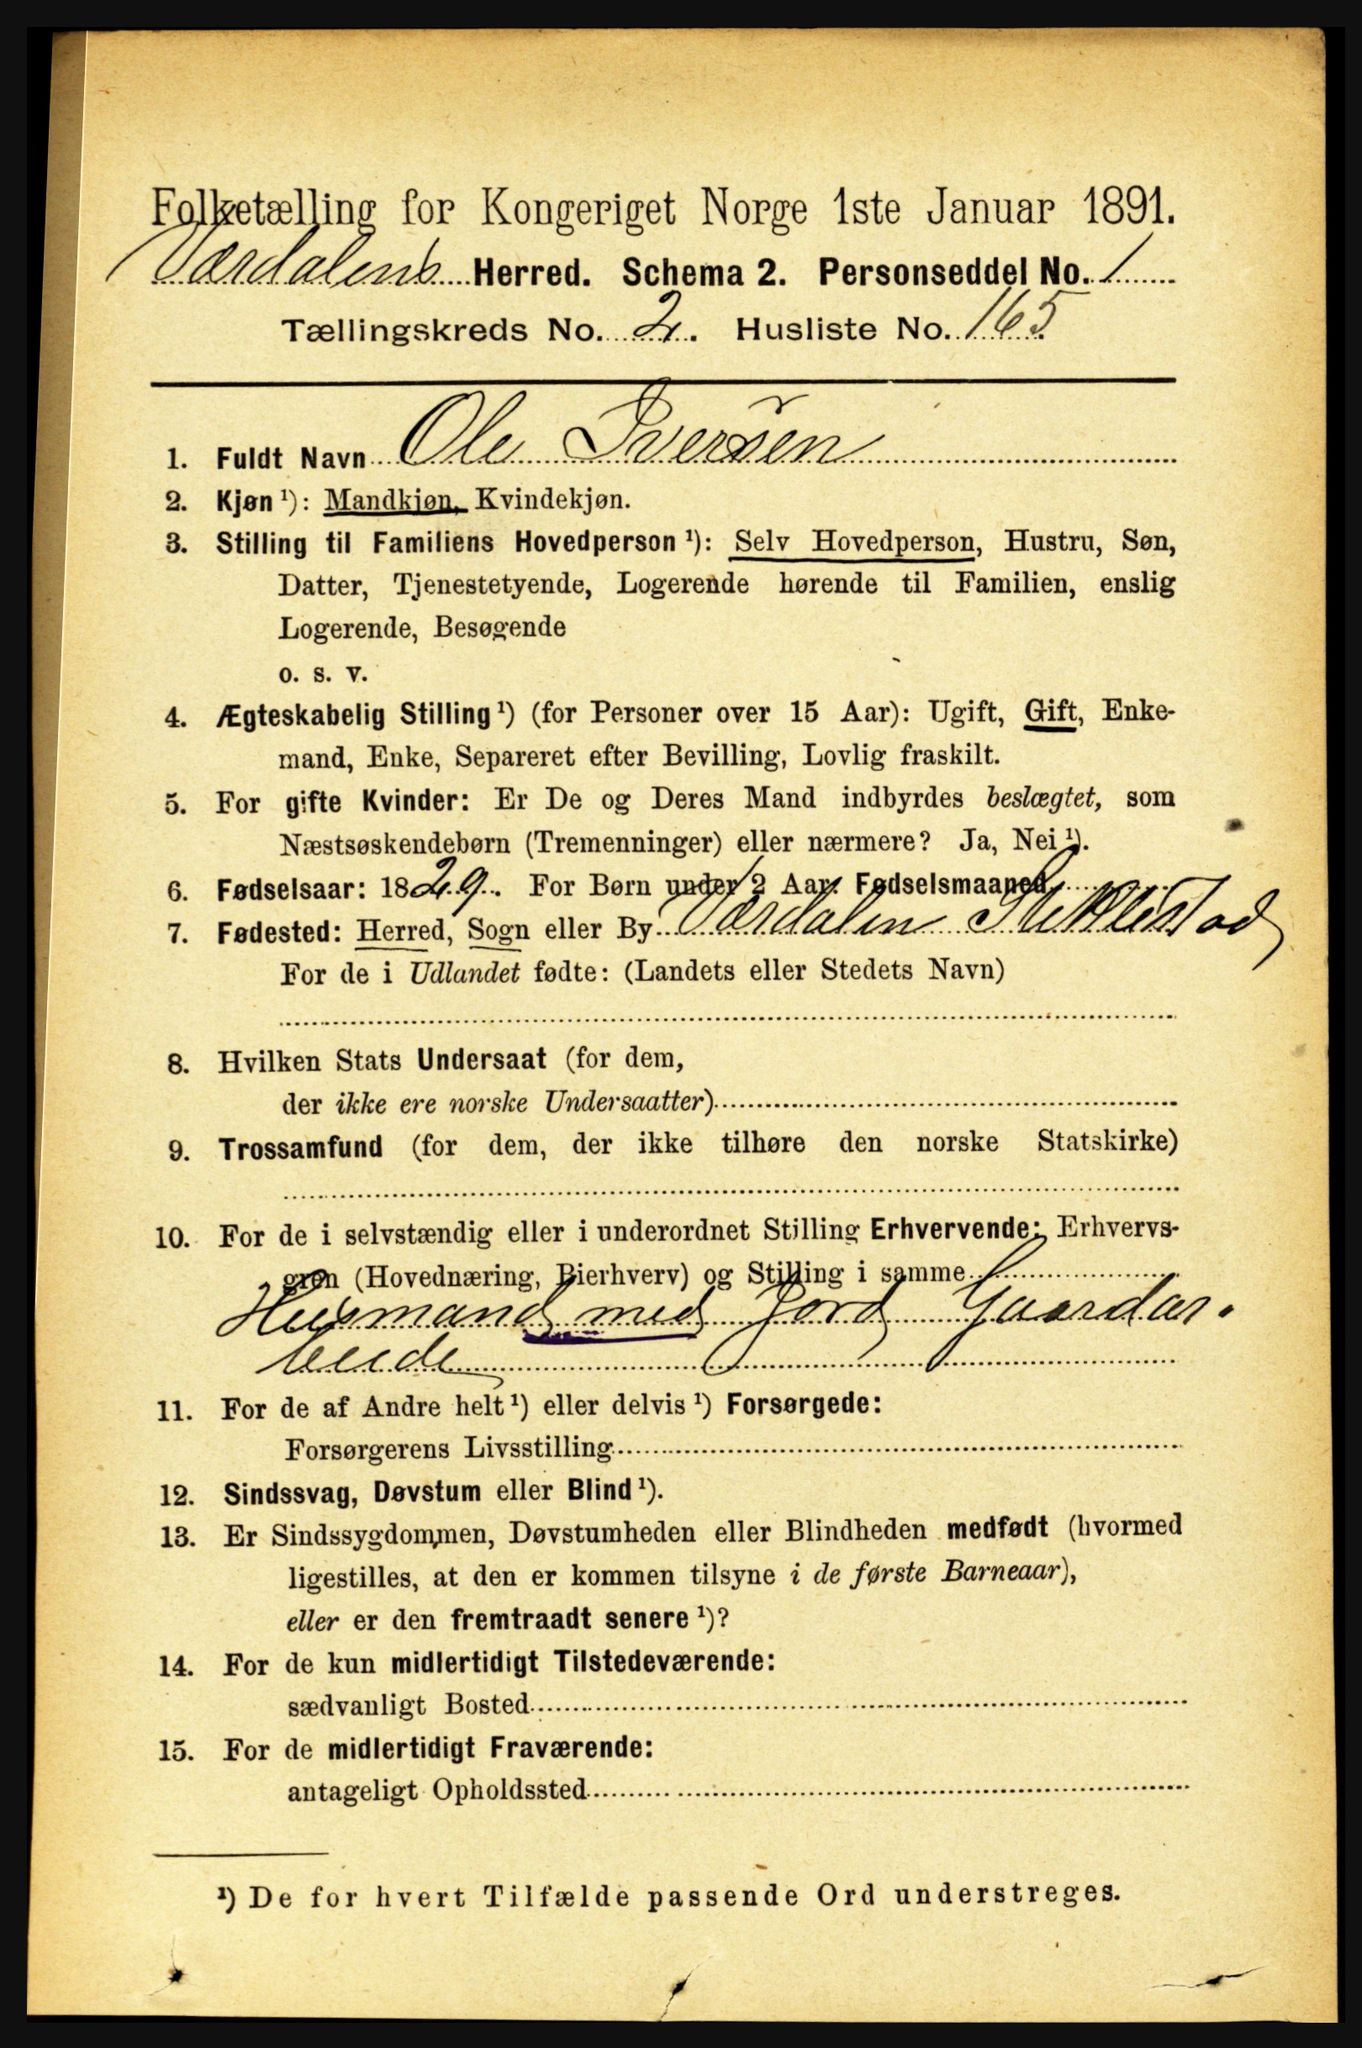 Folketælling for Kongeriget Norge 1ste Januar 1891.
Værdalens Herred. Schema 2. Personseddel No. 1
Tællingskreds No. 2. Husliste No. 165
1. Fuldt Navn Ole Iversen
2. Kjøn ¹): Mandkjøn, Kvindekjøn.
3. Stilling til Familiens Hovedperson ¹): Selv Hovedperson, Hustru, Søn,
Datter, Tjenestetyende, Logerende hørende til Familien, enslig
Logerende, Besøgende
o. s. v.
4. Ægteskabelig Stilling ¹) (for Personer over 15 Aar): Ugift, Gift, Enke-
mand, Enke, Separeret efter Bevilling, Lovlig fraskilt.
5. For gifte Kvinder: Er De og Deres Mand indbyrdes beslægtet, som
Næstsøskendebørn (Tremenninger) eller nærmere? Ja, Nei ¹).
6. Fødselsaar: 1829. For Børn under 2 Aar: Fødselsmaaned
7. Fødested: Herred, Sogn eller By Værdalen Stiklestad
For de i Udlandet fødte: (Landets eller Stedets Navn)
8. Hvilken Stats Undersaat (for dem,
der ikke ere norske Undersaatter)
9. Trossamfund (for dem, der ikke tilhøre den norske Statskirke)
10. For de i selvstændig eller i underordnet Stilling Erhvervende: Erhvervs-
gren (Hovednæring, Bierhverv) og Stilling i samme
Husmand med Jord Gaardar-
beide
11. For de af Andre helt ¹) eller delvis ¹) Forsørgede:
Forsørgerens Livsstilling
12. Sindssvag, Døvstum eller Blind ¹).
13. Er Sindssygdommen, Døvstumheden eller Blindheden medfødt (hvormed
ligestilles, at den er kommen tilsyne i de første Barneaar),
eller er den fremtraadt senere ¹)?
14. For de kun midlertidigt Tilstedeværende:
sædvanligt Bosted
15. For de midlertidigt Fraværende:
antageligt Opholdssted
¹) De for hvert Tilfælde passende Ord understreges.